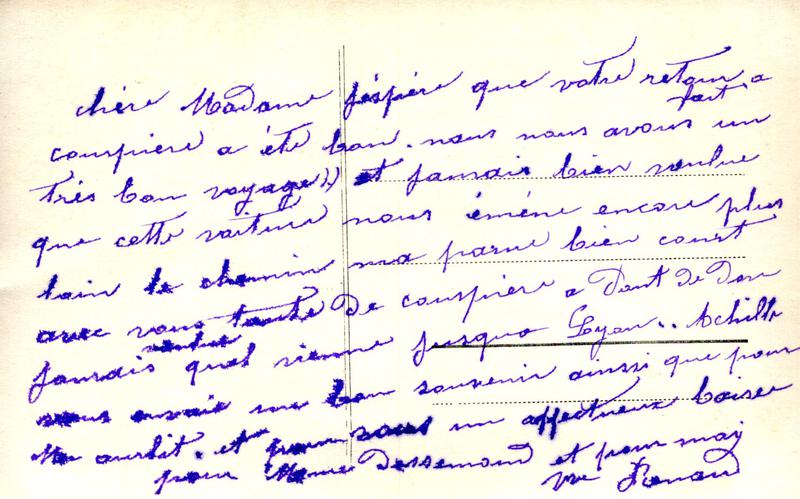 chère Madame j'éspère que votre retour a
couspière a été bon. nous nous avous fait un
très bon voyage)) et jaurais bien voulue
que cette voiture nous émène encore plus
loin le chemin ma parue bien court
avec vous toute de couspière a Pont de Dou
jaurais voulue quel vienne jusqua Lyon.. Achille
vous envoie un bon souvenir ainsi que pour
et pour vous un affectueux baiser
pour Mme Dessemond et pour moi
Renoud